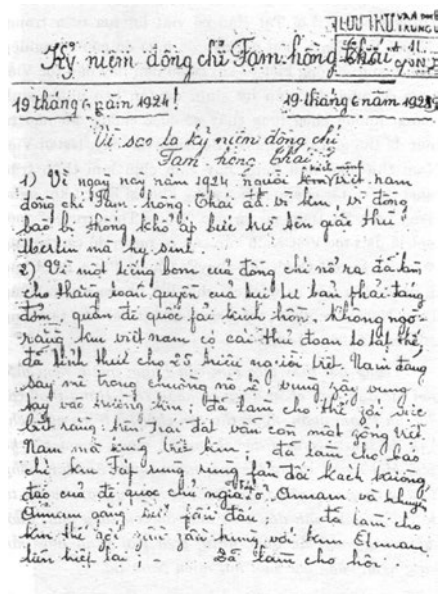 LƯU TRỮ
VĂN
TRUNG Ư
Kỷ niệm đồng chí Fạm hồng Thái
19 tháng 6 năm 1924!
19 tháng 6 năm 192
Vì sao ta kỷ niệm đồng chí
Fạm hồng Thái?
1) Vì ngày này năm 1924 người Việt nam
đồng chí Fạm hồng Thái đã vì km, vì đồng
bào bị thống khổ áp bức trừ tên giặc thù
Merlin mà hy sinh
2) Vì một tiếng bom của đồng chí nổ ra đã làm
cho thằng toàn quyền của lũ tư bản phải táng
đởm, quân đế quốc fải kinh hồn, không ngờ
rằng km việt nam có cái thủ đoạn to tát thế,
đã tỉnh thức cho 25 triệu người Việt Nam đang
say mê trong chuồng nô lệ vùng dậy vung
tay vào trường km; đã làm cho thế zới
biết rằng: trên trái đất vẫn còn một zống Việt
Nam mà cũng biết km; đã làm cho báo
chí km Fáp rung rinh fản đối kách
đạo của đế quốc chủ ngĩa ở Annam và khuyên
Annam gắng sức fấn đấu đã làm cho
km thế zới zúp với km Annam
liên hiệp lại; - Đã làm cho hồi